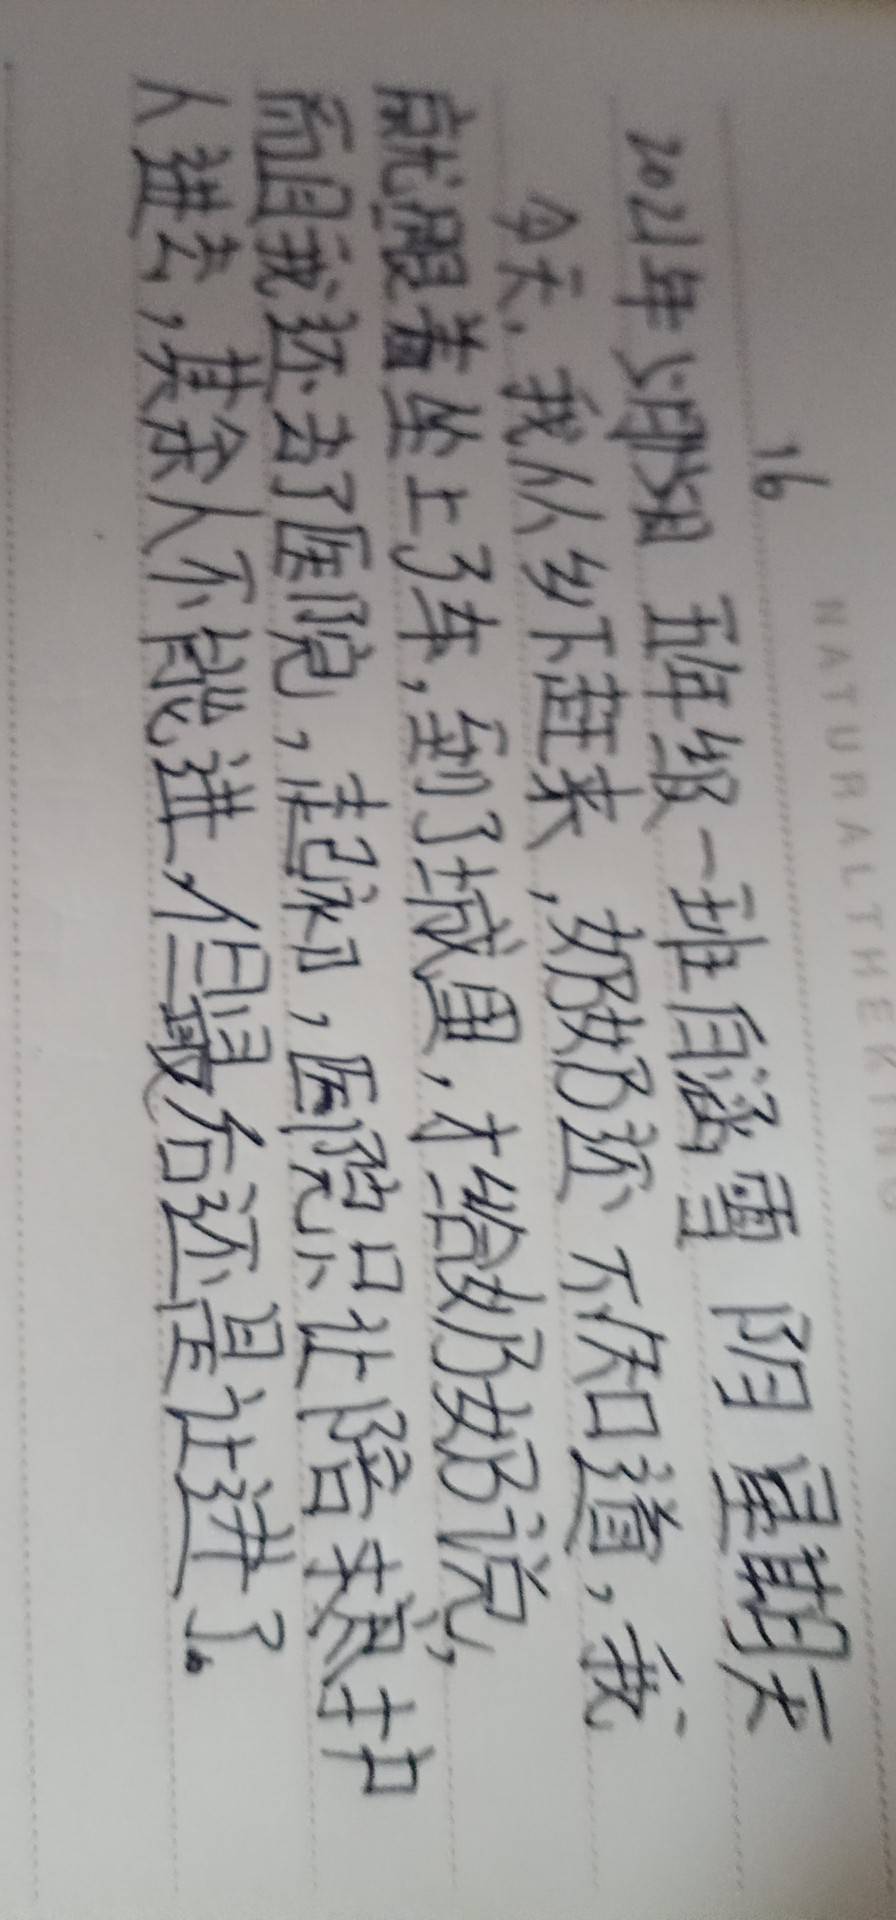 NATURALTHEKING
16
2021年5月日 五年级一班白涵雪 阴 星期天
今天,我从乡下赶来,奶奶还不知道,我
就跟着坐上了车,到了城里,才给奶奶说,
而且我还去了医院,起初,医院只让陪护
人进去,其余人不能进,但最后还是让进了。